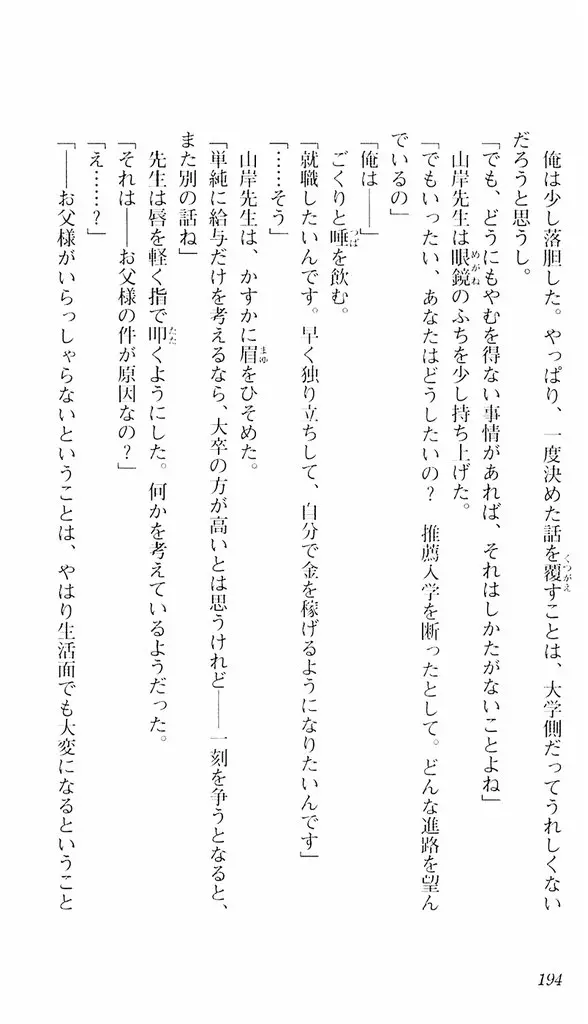 俺は少し落胆した。やっぱり、一度決めた話を覆すことは、大学側だってうれしくない
だろうと思うし。
「でも、どうにもやむを得ない事情があれば、それはしかたがないことよね」
山岸先生は眼鏡のふちを少し持ち上げた。
「でもいったい、あなたはどうしたいの？　推薦入学を断ったとして。どんな進路を望ん
でいるの」
「俺は――」
ごくりと唾を飲む。
「就職したいんです。早く独り立ちして、自分で金を稼げるようになりたいんです」
「……そう」
山岸先生は、かすかに眉をひそめた。
「単純に給与だけを考えるなら、大卒の方が高いとは思うけれど――一刻を争うとなると、
また別の話ね」
先生は唇を軽く指で叩くようにした。何かを考えているようだった。
「それは――お父様の件が原因なの？」
「え……？」
「――お父様がいらっしゃらないということは、やはり生活面でも大変になるということ
194